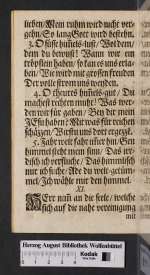 lieben/Mein ruhm wird nicht ver-
gehn/So lang Gott wird bestehn.
3. O süsse himmels-lust/Wol dem/
dem du bewust! Wann wir ein
tröpflein haben/so kan es uns erla-
ben/Wie wird mit grossen freuden
Der volle strom uns weiden.
4. O theures himmels-gut/Du
machest rechten muht! Was wer-
den wir für gaben/Bey dir mein
JEsu haben! Mit was für reichen
schätzen/Wirst uns dort ergetzt.
5. Fahr welt fahr
himmel steht mein sinn/Das ir-
disch ich verfluche/Das himmlisch
nur ich suche/Ade du welt-getüm-
mel/Ich wähle mir den himmel.
XI.
HErr nun an die seele/welche
sich auf die nahe vereinigung
mit
Herzog August Bibliothek Wolfenbüttel
Kodak